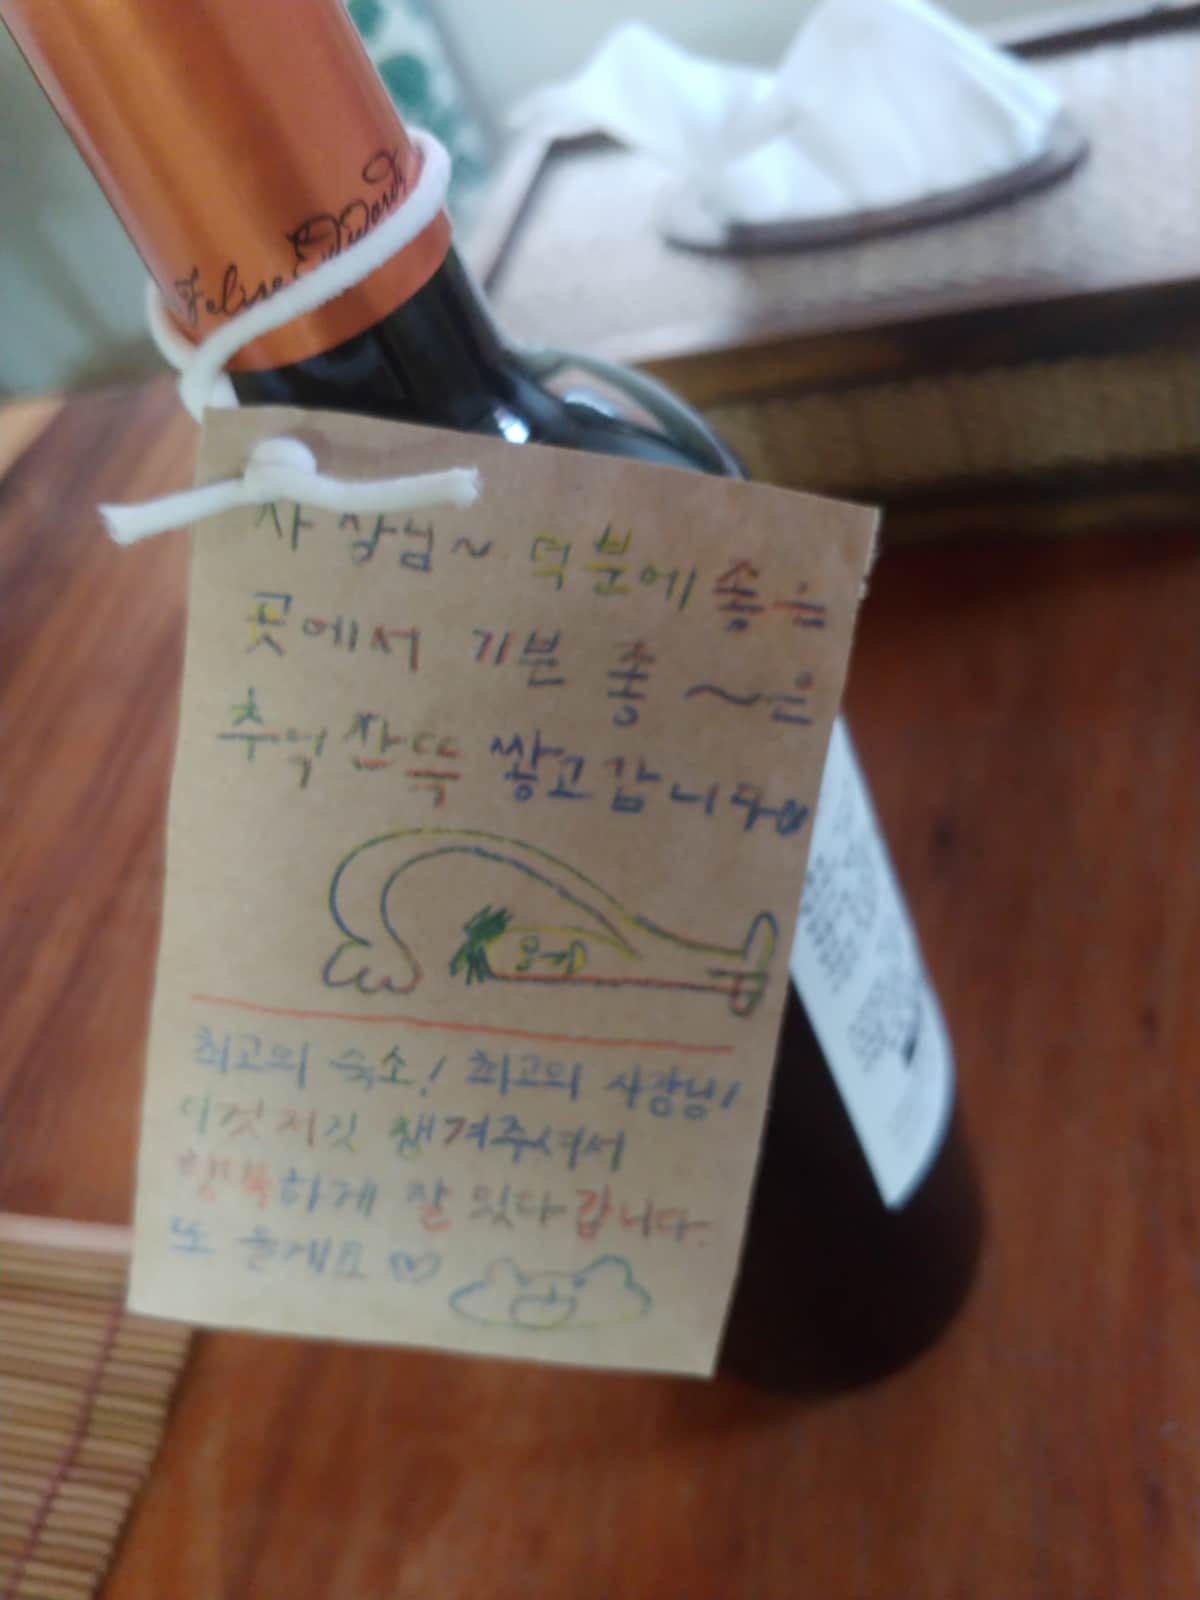 Felise Eduardo
사장님~ 덕분에 좋은
곳에서 기분 좋~은
추억 잔뜩 쌓고갑니다
최고의 숙소! 최고의 사장님!
이것저것 챙겨주셔서
행복하게 잘 있다 갑니다.
또 올게요♡